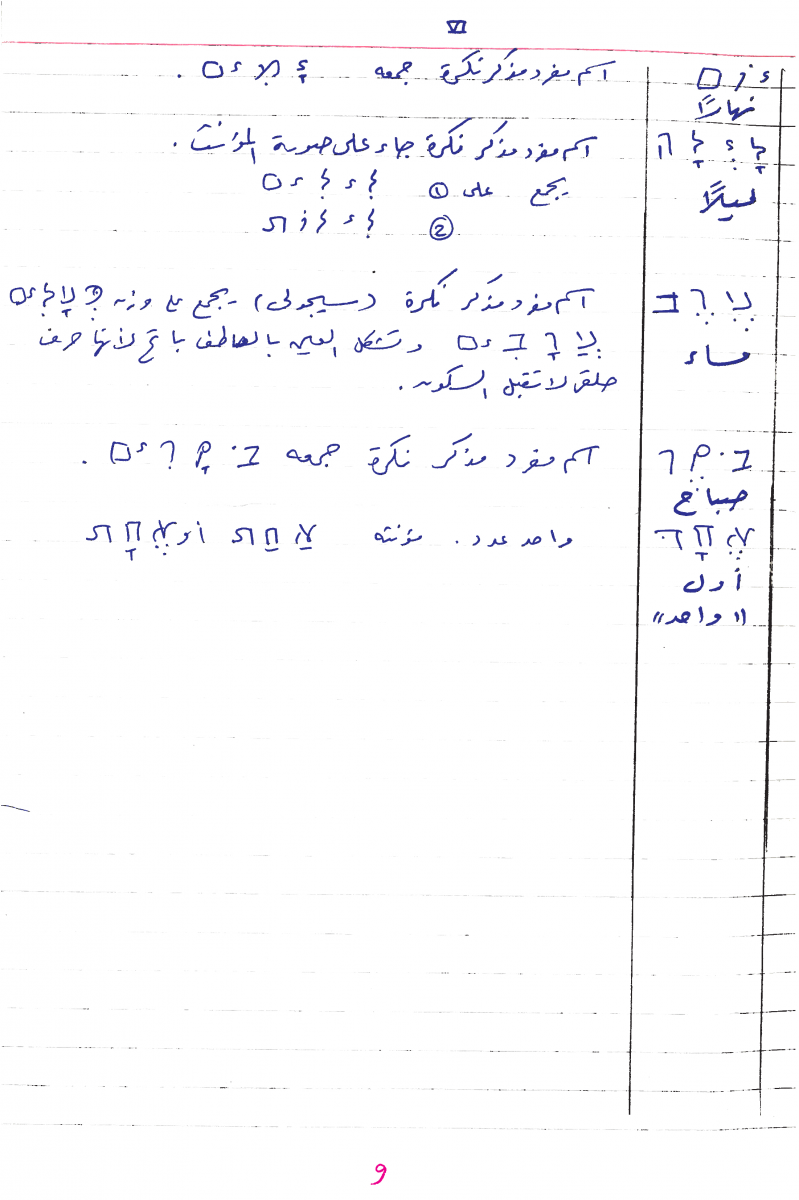 VI
יום اسم مفرد مذكر نكرة جمعه יָמים .
نهارًا
לָיְלָה اسم مفرد مذكر نكرة جاء على صورة المؤنث .
ليلًا يجمع على ① לילים
② לילות
עֶרֶב اسم مفرد مذكر نكرة (سيجولى) يجمع على وزن פְעָלים
مساء עֲרָבים وتشكل العين بالحاطف باتح لأنها حرف
حلقى لا تقبل السكون .
בֹקֶר اسم مفرد مذكر نكرة جمعه בֹקָרים .
صباح
אֶחָד واحد عدد . مؤنثه אַחַת أو אֶחָת
أول
"واحد"
9